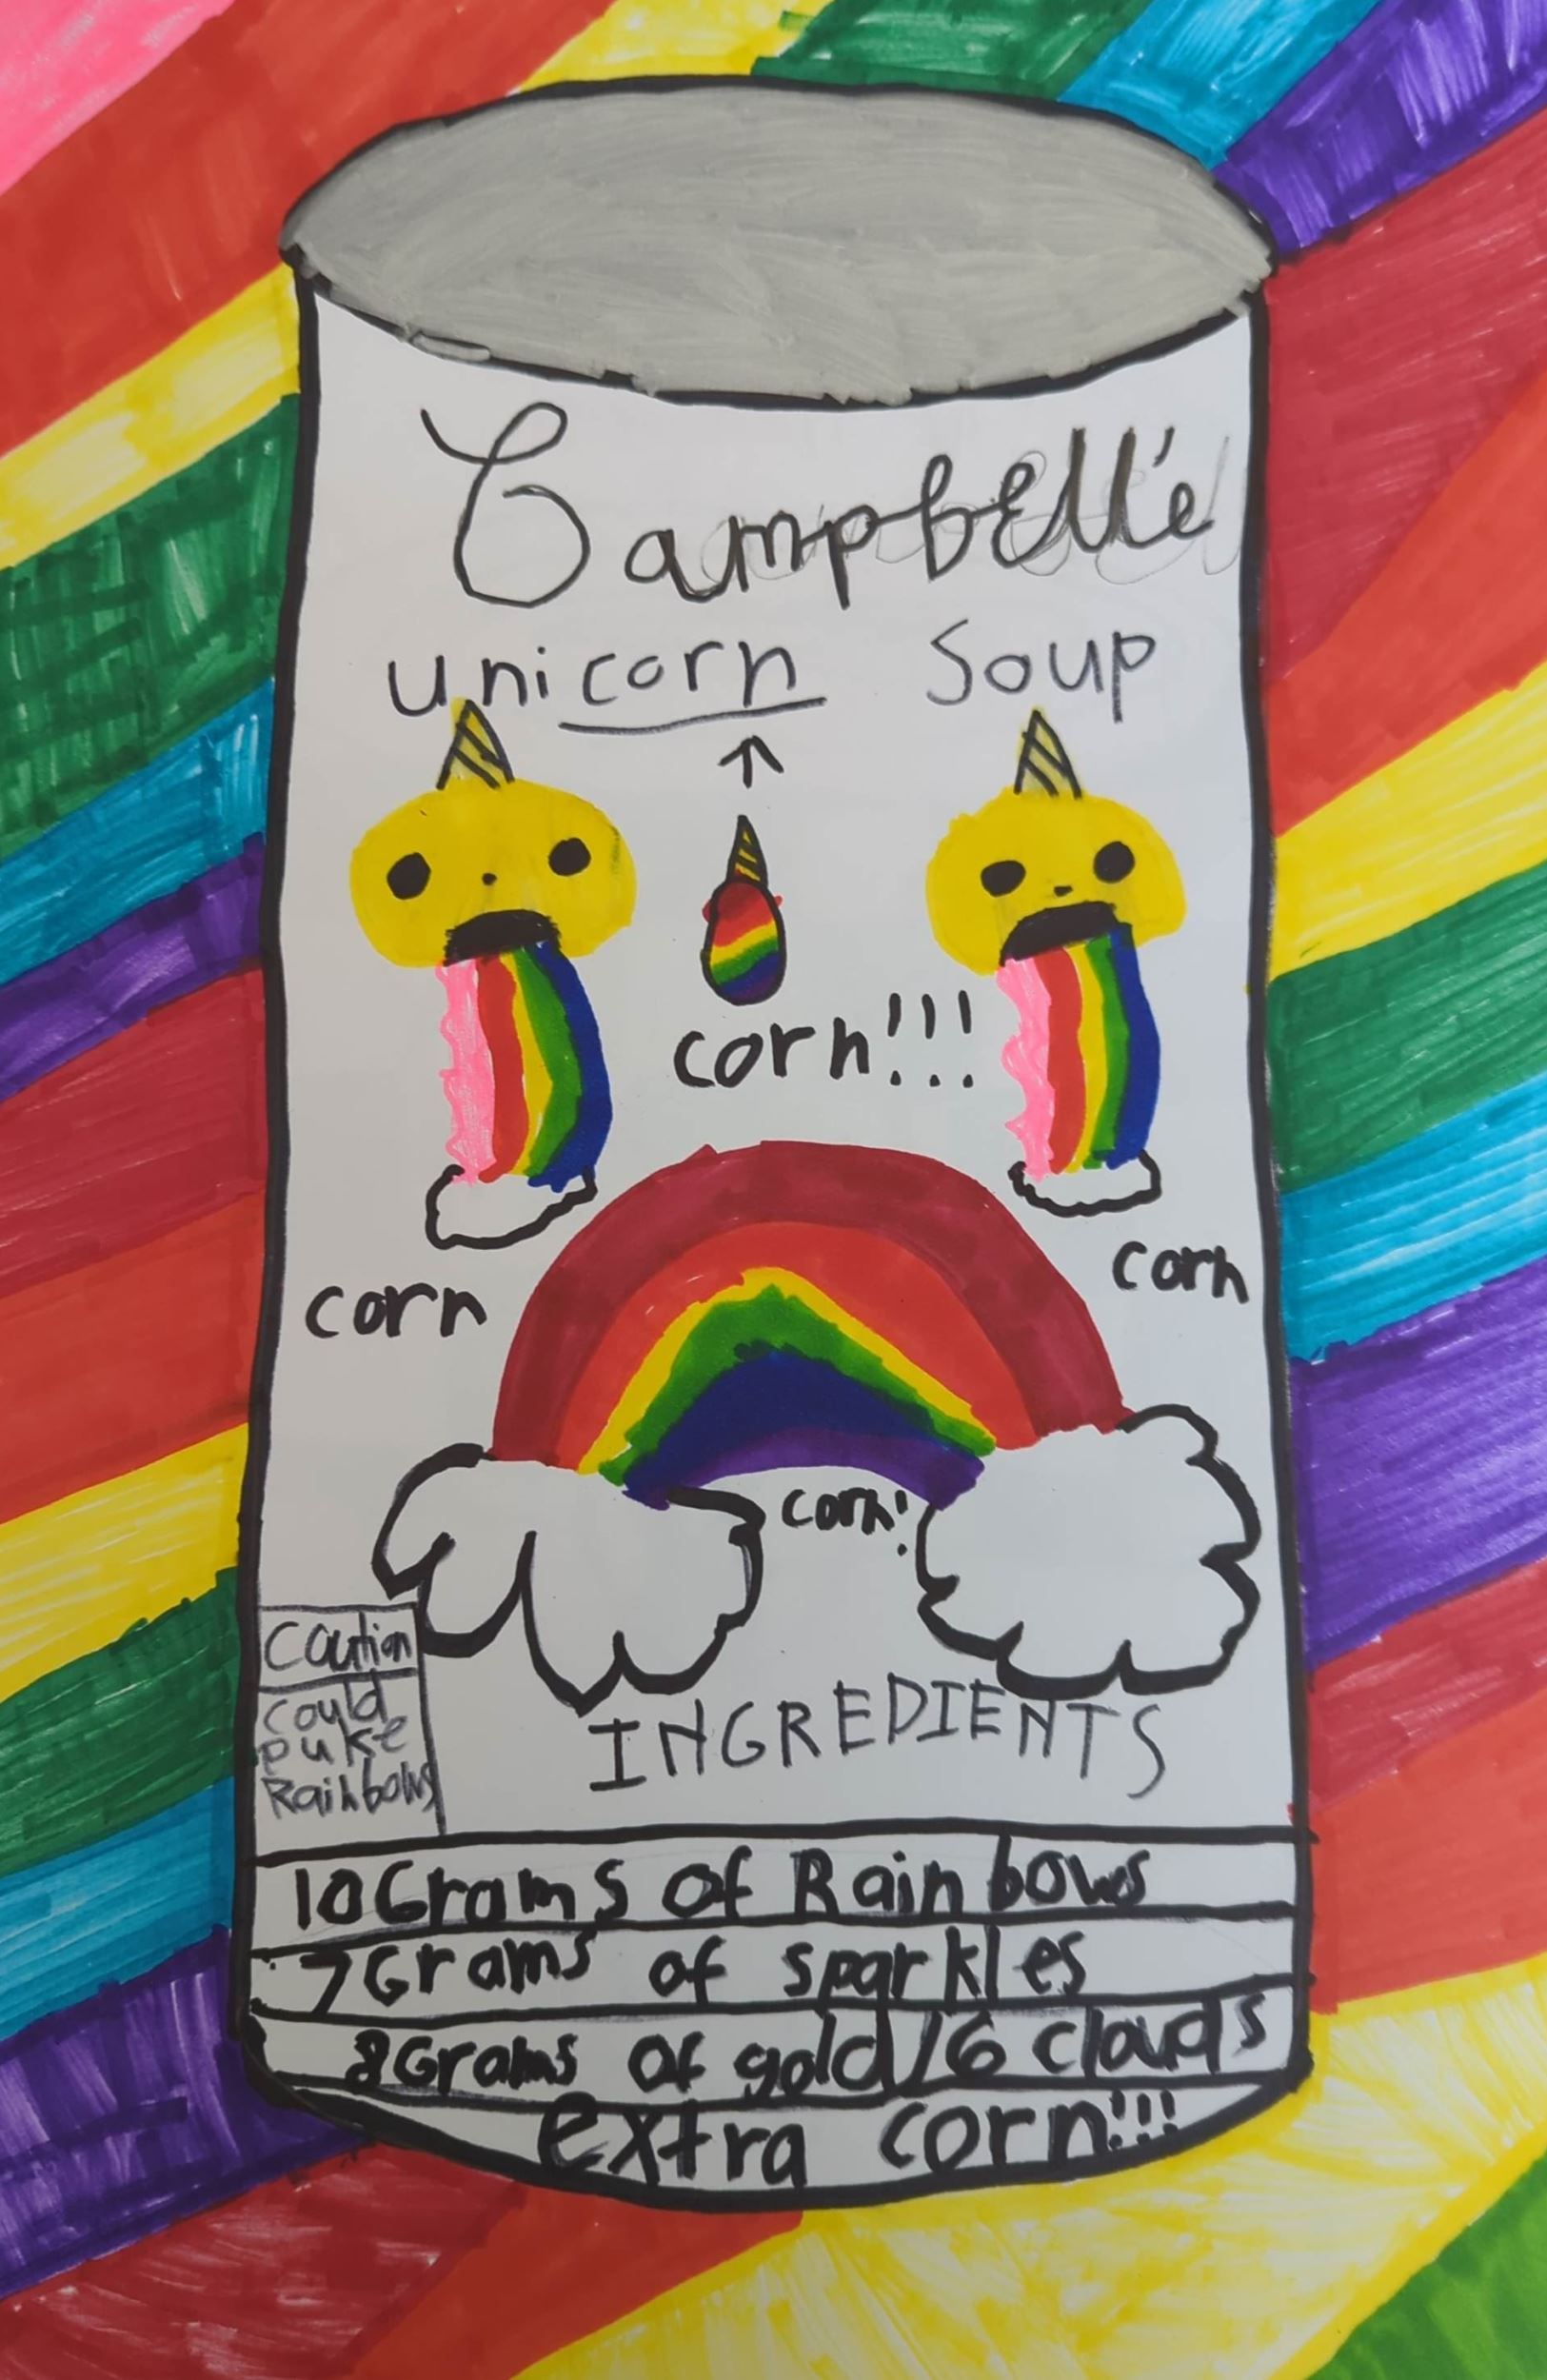 Campbell's
unicorn Soup
corn!!!
corn
corn
corn!
Caution
could
puke
Rainbows
INGREDIENTS
10 Grams of Rainbows
7 Grams of sparkles
8 Grams of gold/6 clouds
extra corn!!!